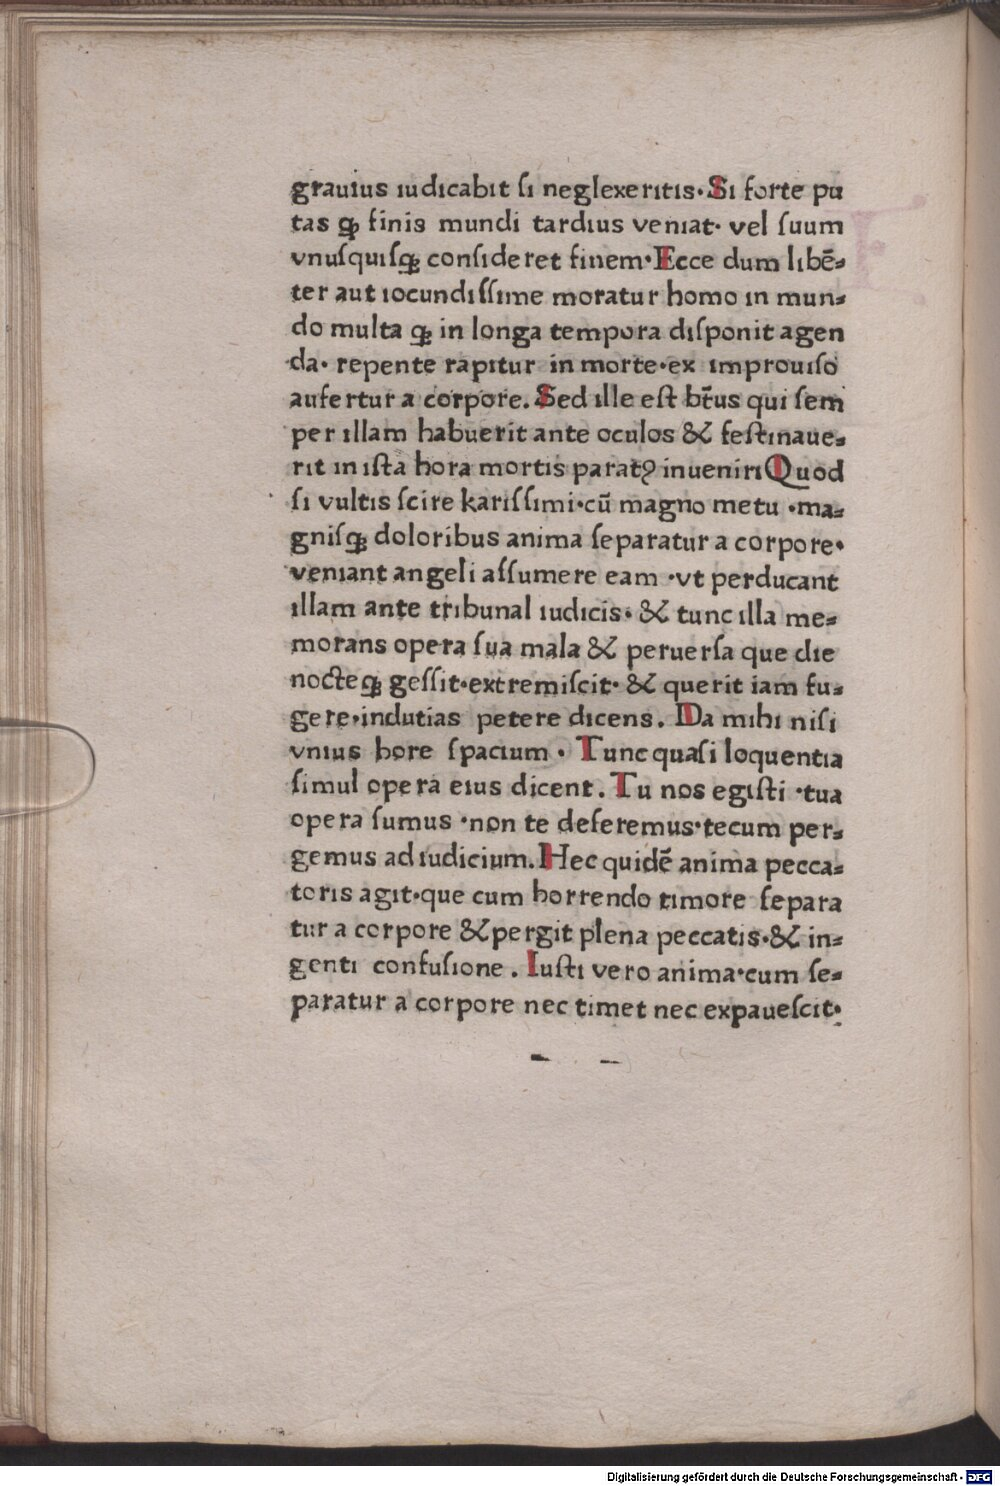 grauius iudicabit ſi neglexeritis·Si forte pu
tas ꝙ finis mundi tardius veniat· vel ſuum
vnuſquiſꝙ conſideret finem·Ecce dum libē⸗
ter aut iocundiſſime moratur homo in mun⸗
do multa ꝙ in longa tempora diſponit agen
da· repente rapitur in morte·ex improuiſo
aufertur a corpore. Sed ille eſt bt̄us qui ſem
per illam habuerit ante oculos & feſtinaue⸗
rit in iſta hora mortis paratꝰ inueniri Quod
ſi vultis ſcire kariſſimi·cū magno metu ·ma⸗
gniſꝙ doloribus anima ſeparatur a corpore·
veniant angeli aſſumere eam ·vt perducant
illam ante tribunal iudicis· & tunc illa me⸗
morans opera ſua mala & peruerſa que die
nocteꝙ geſſit·extremiſcit· & querit iam fu⸗
gere·indutias petere dicens. Da mihi niſi
vnius hore ſpacium · Tunc quaſi loquentia
ſimul opera eius dicent. Tu nos egiſti ·tua
opera ſumus ·non te deſeremus·tecum per⸗
gemus ad iudicium. Hec quidē anima pecca⸗
toris agit·que cum horrendo timore ſepara
tur a corpore & pergit plena peccatis·& in⸗
genti confuſione . Iuſti vero anima·cum ſe⸗
paratur a corpore nec timet nec expaueſcit·
Digitalisierung gefördert durch die Deutsche Forschungsgemeinschaft - DFG